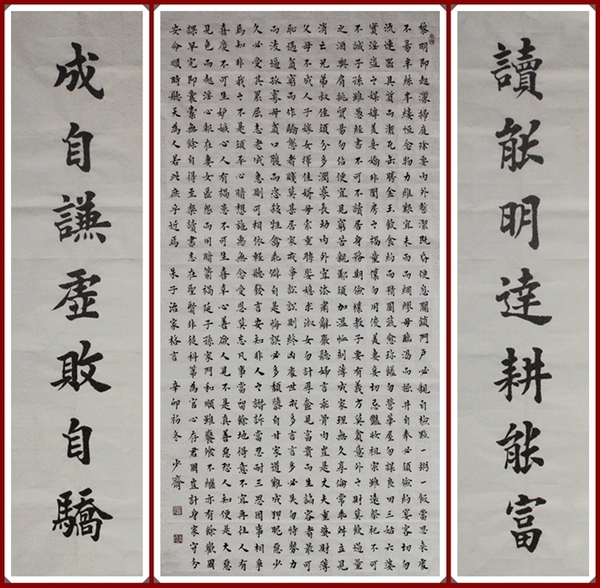 讀能明達耕能富
黎明即起灑掃庭除要內外整潔既昏便息關鎖門戶必親自檢點一粥一飯當思來處
不易半絲半縷恆念物力維艱宜未雨而綢繆毋臨渴而掘井自奉必須儉約宴客切勿
流連器具質而潔瓦缶勝金玉飲食約而精園蔬愈珍饈勿營華屋勿謀良田三姑六婆
實淫盜之媒婢美妾嬌非閨房之福童僕勿用俊美妻妾切忌艷妝祖宗雖遠祭祀不可
不誠子孫雖愚經書不可不讀居身務期儉樸教子要有義方莫貪意外之財莫飲過量
之酒與肩挑貿易勿佔便宜見窮苦親鄰須加溫恤刻薄成家理無久享倫常乖舛立見
消亡兄弟叔侄須分多潤寡長幼內外宜法肅辭嚴聽婦言乖骨肉豈是丈夫重資財薄
父母不成人子嫁女擇佳婿毋索重聘娶媳求淑女勿計厚奩見富貴而生諂容者最可
恥遇貧窮而作驕態者賤莫甚居家戒爭訟訟則終凶處世戒多言言多必失勿恃勢力
而凌逼孤寡毋貪口腹而恣殺牲禽乖僻自是悔誤必多頹惰自甘家道難成狎昵惡少
久必受其累屈志老成急則可相依輕聽發言安知非人之譖訴當忍耐三思因事相爭
焉知非我之不是須平心暗想施惠無念受恩莫忘凡事當留餘地得意不宜再往人有
喜慶不可生妒嫉心人有禍患不可生喜幸心善欲人見不是真善惡恐人知便是大惡
見色而起淫心報在妻女匿怨而用暗箭禍延子孫家門和順雖饔飧不繼亦有餘歡國
課早完即囊橐無餘自得至樂讀書志在聖賢非徒科第為官心存君國豈計身家守分
安命順時聽天為人若此庶乎近焉 朱子治家格言 辛卯初冬 少齋
成自謙虛敗自驕